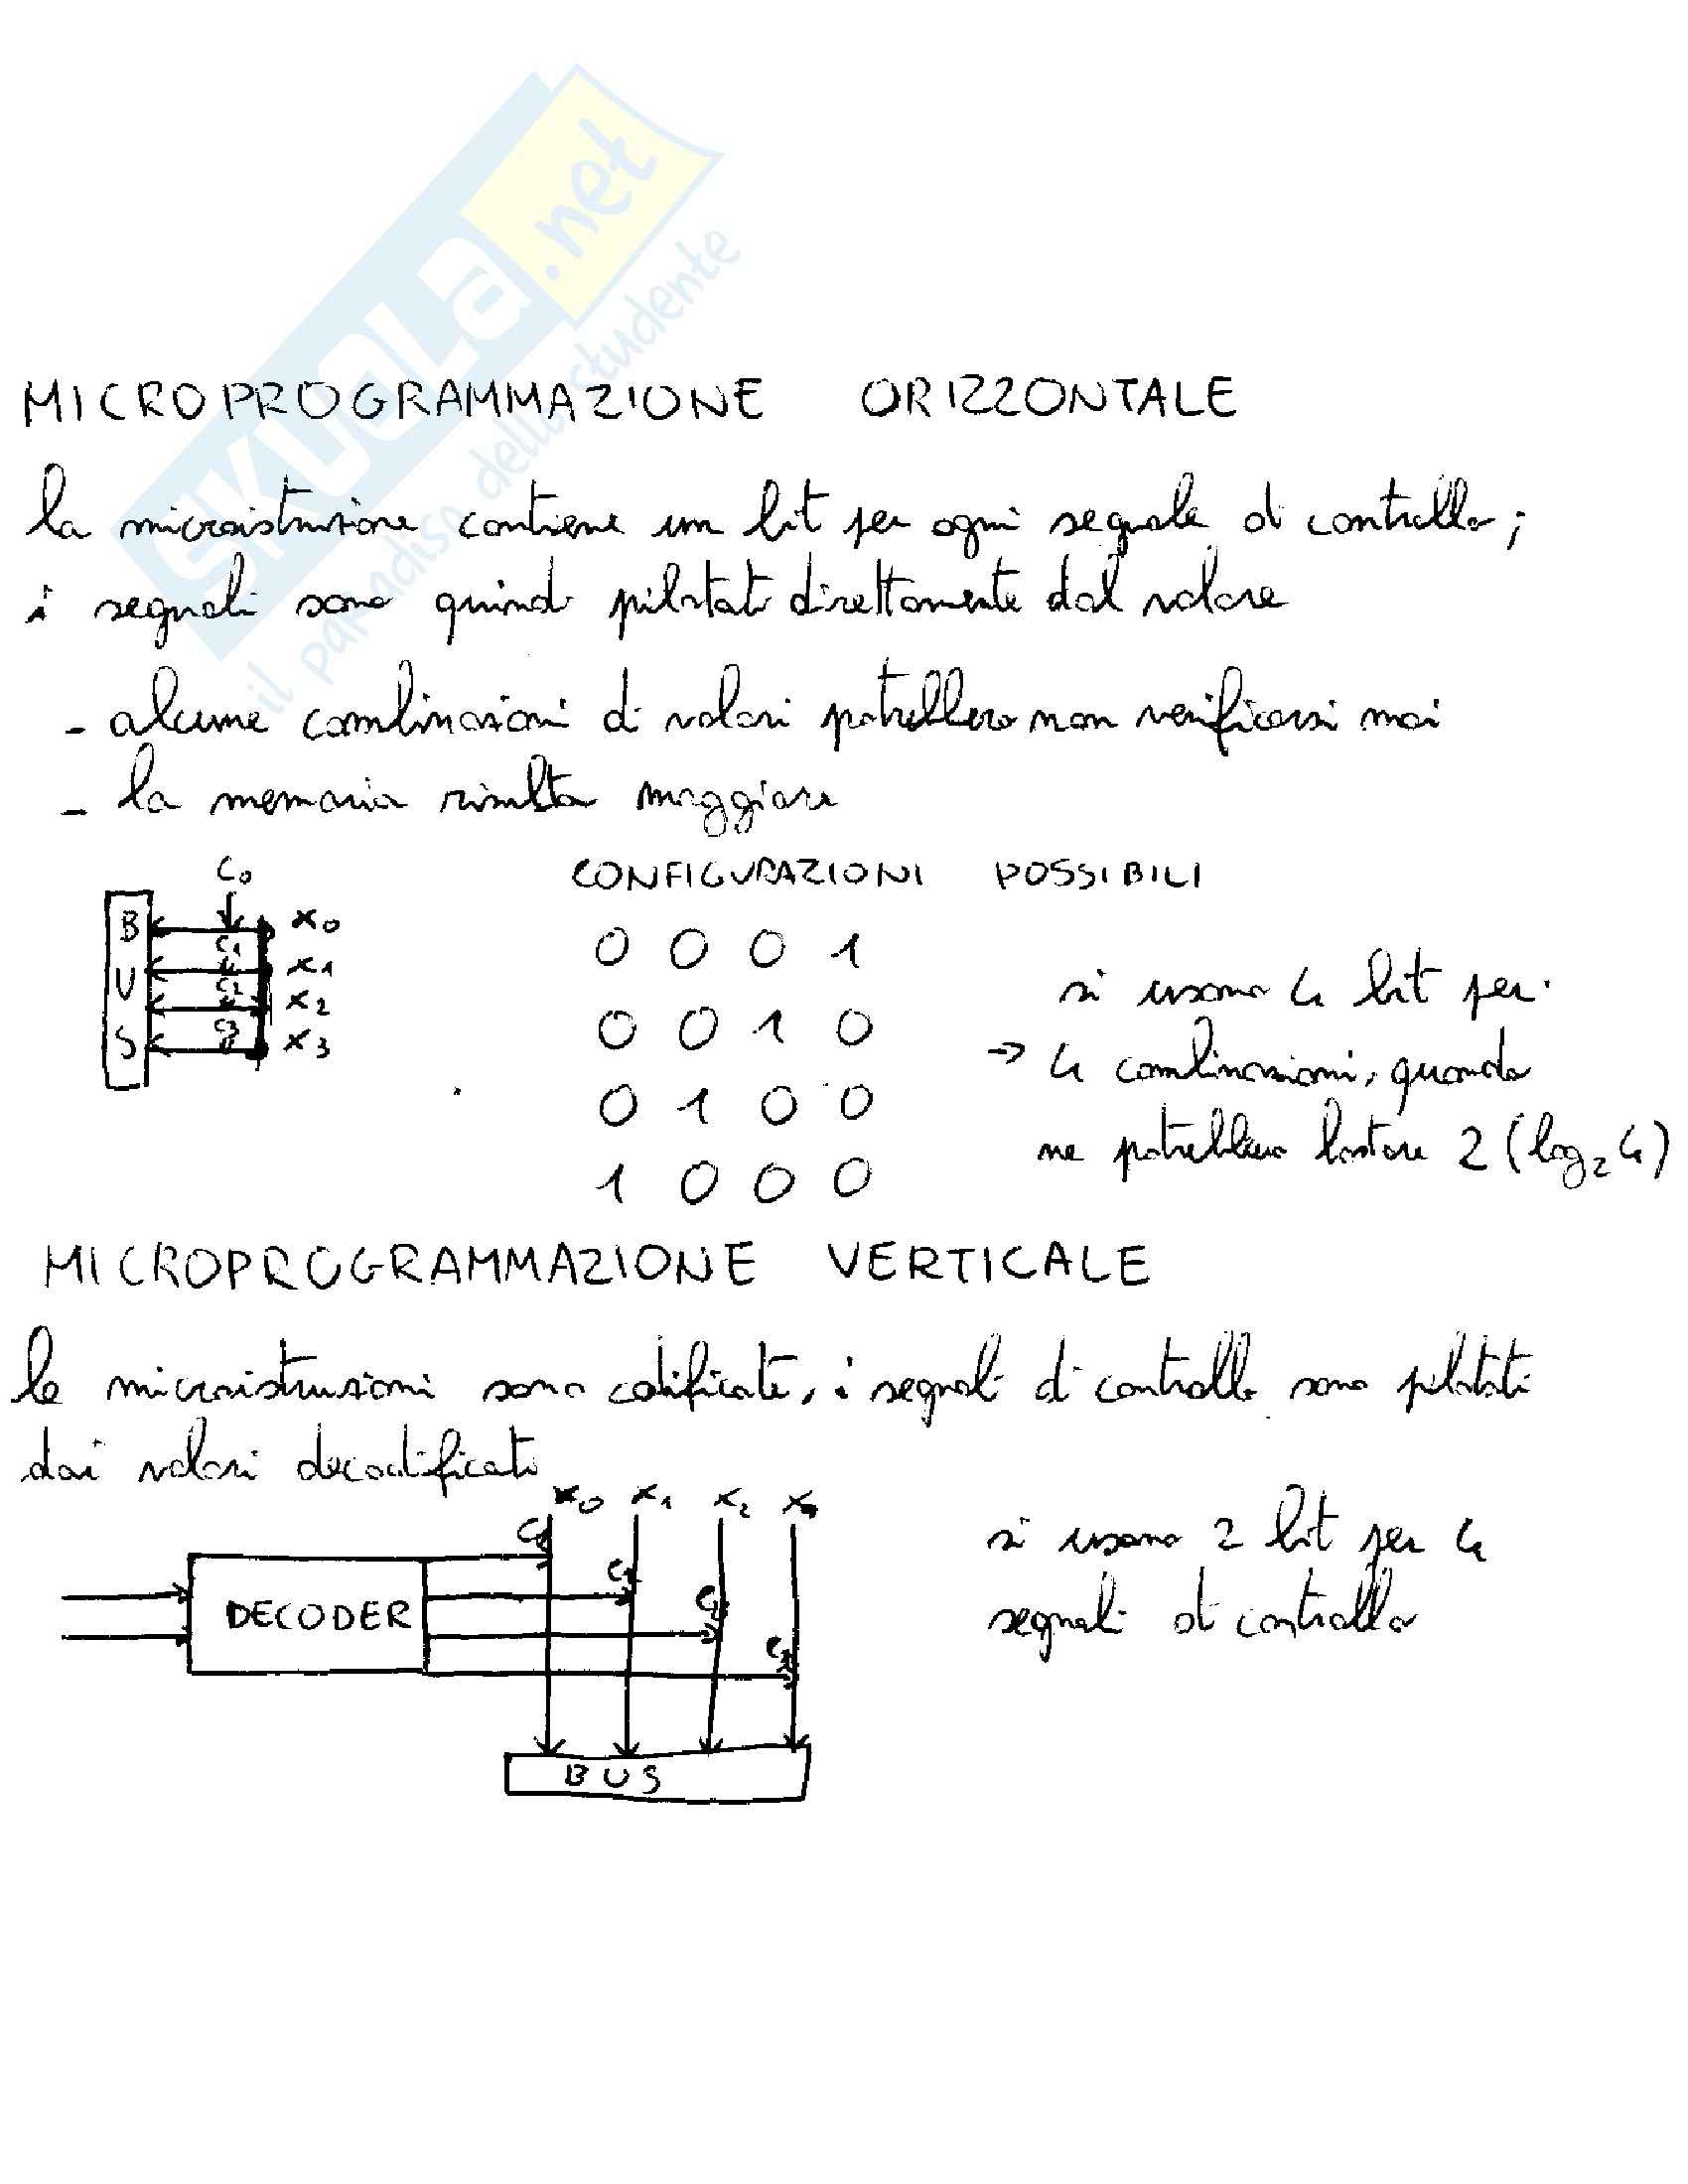 SKUOLA.net
il paradiso dello studente
MICROPROGRAMMAZIONE ORIZZONTALE
la microistruzione contiene un bit per ogni segnale di controllo;
i segnali sono quindi pilotati direttamente dal valore
- alcune combinazioni di valori potrebbero non verificarsi mai
- la memoria risulta maggiore
C0
CONFIGURAZIONI POSSIBILI
BUS
x0
C1
x1
C2
x2
C3
x3
0 0 0 1
0 0 1 0
0 1 0 0
1 0 0 0
si usano 4 bit per
→ 4 combinazioni, quando
ne potrebbero bastare 2 (log₂ 4)
MICROPROGRAMMAZIONE VERTICALE
le microistruzioni sono codificate, i segnali di controllo sono pilotati
dai valori decodificati
x0 x1 x2 x3
C0
C1
C2
C3
DECODER
BUS
si usano 2 bit per 4
segnali di controllo